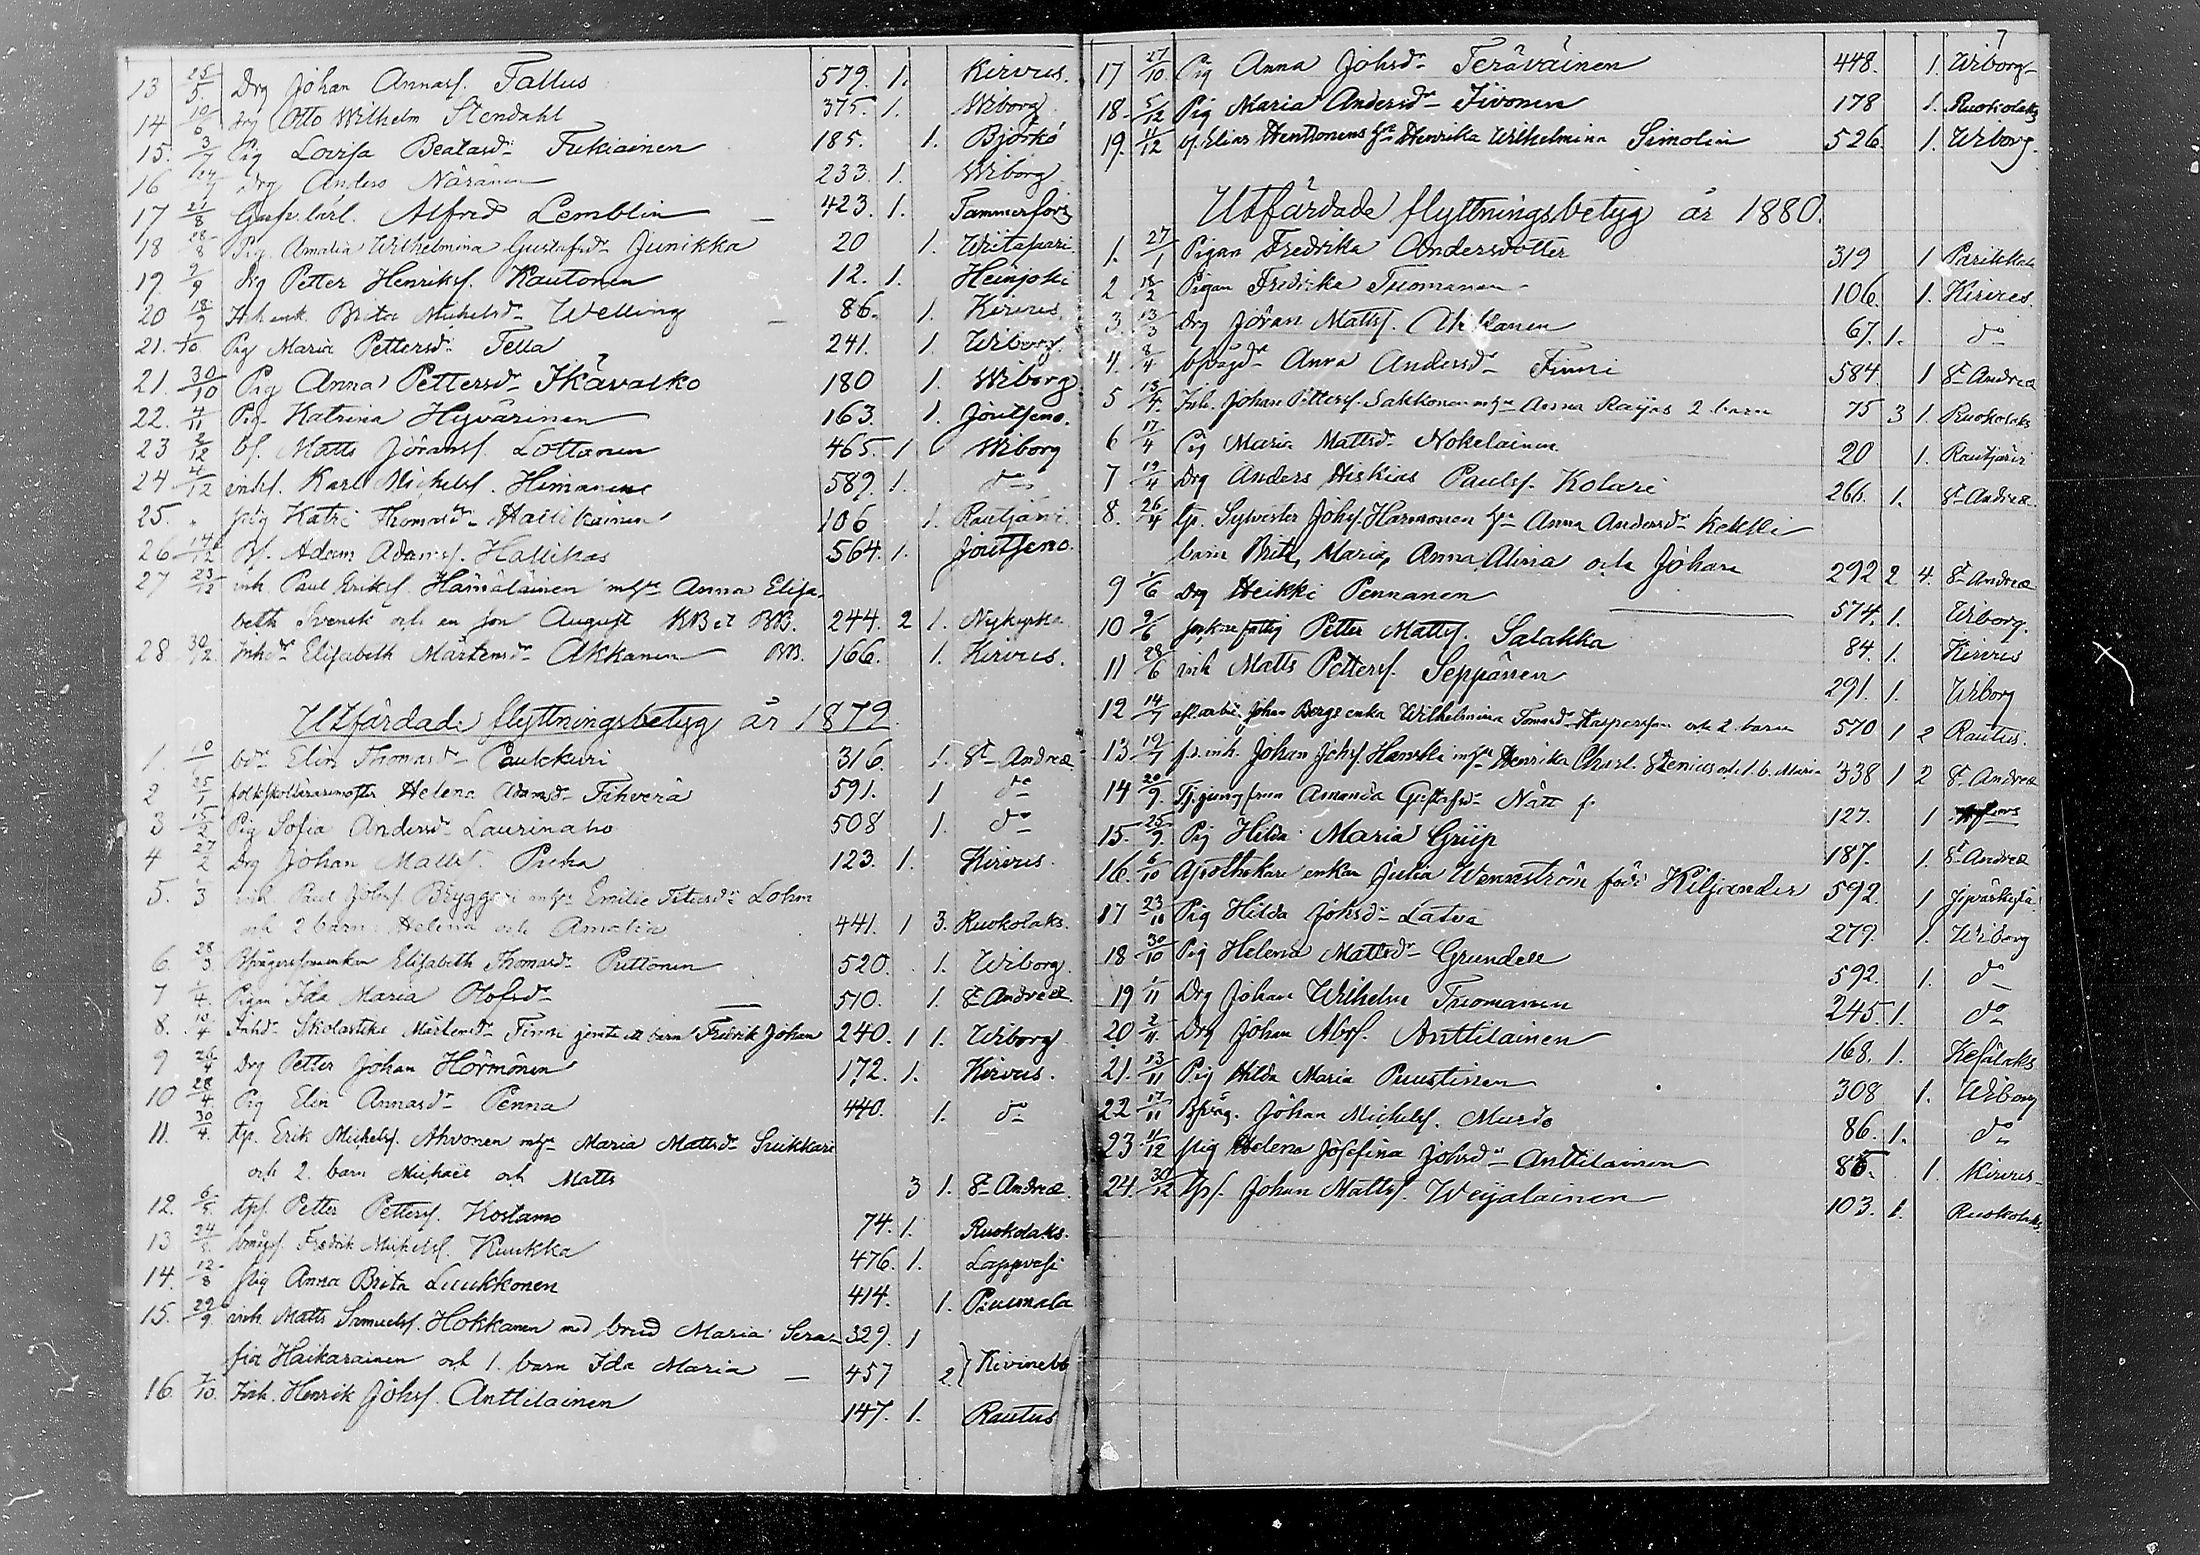 13 25/5 Drg Johan Annasf. Tallus 579. 1. Kirvus.
14 10/6 Drg Otto Wilhelm Stendahl 375. 1. Wiborg
15. 3/7 Pig Lovisa Beatasdr Tukiainen 185. 1. Björkö
16 Drg Anders Näränen 233. 1. Wiborg
17 21/8 Alfred Lemblin — 423. 1. Tammerfors
18 28/8 Pig. Amalia Wilhelmina Gustafsdr Junikka 20 1. Wiitasaari
19 9/9 Drg Petter Henriksf. Kautonen 12. 1. Heinjoki
20 18/9 Inh enk. Brita Michelsdr Welling — 86. 1. Kirvus.
21. 1/10 Pig Maria Pettersdr Tella 241. 1. Wiborg.
21. 30/10 Pig Anna Pettersdr Ikävalko 180 1. Wiborg
22. 4/11 Pig Katrina Hyvärinen 163. 1. Joutseno.
23 2/12 bf. Matts Jöransf. Lottanen 465. 1 Wiborg
24 4/12 Karl Michelsf. Himanen 589. 1. do
25. " pig Katri Thomasdr Hallikainen 106 1. Rautjärvi
26 14/12 Bf. Adam Adamsf. Hallikas 564. 1. Joutseno.
27 23/12 inh. Paul Eriksf. Hämäläinen m hu Anna Elisa-
beth Svensk och en son August KB et BB. 244. 2 1. Nykyrka
28. 30/12. Inhdr Elisabeth Mårtensdr Akkanen BB. 166. 1. Kirvus.
Utfärdade flyttningsbetyg år 1879.
1 10/1 bdr Elin Thomasdr Paukkuri 316 1. St Andreæ
2 25/1 Helena Adamsdr Tihverä 591. 1 do
3 15/2 Pig Sofia Andersdr Laurinaho 508 1. do
4 27/2 Drg Johan Mattsf. Puka 123. 1. Kirvus.
5. 1/3 inh Paul Johsf Bryggeri m hu Emilie Lohm
och 2 barn Helena och Amalia 441. 1 3. Ruokolaks.
6. 28/3 Elisabeth Thomasdr Puttonen 520. 1. Wiborg.
7 1/4. Pigan Ida Maria Olofsdr — 510. 1. St Andreæ
8. 10/4 Inhdr Skolastika Mårtensdr Finni jemte ett barn Fredrik Johan 240. 1 1. Wiborg
9 26/4 Drg Petter Johan Hörmönen 172. 1. Kirvus.
10 28/4. Pig Elin Annasdr Penna 440. 1. do
11. 30/4. tp. Erik Michelsf. Ahvonen m hu Maria Mattsdr Suikkari
och 2. barn Michael och Matts 3 1. St Andreæ.
12. 6/5 tpf. Petter Pettersf. Kostamo 74. 1. Ruokolaks.
13 24/5 Fredrik Michelsf. Kuukka 476. 1. Lappvesi
14. 12/8 pig Anna Brita Luukkonen 414. 1. Puumala
15. 29/9 inh. Matts Samuelsf. Hokkanen med brud Maria Sera- 329. 1
fia Haikarainen och 1. barn Ida Maria — 457 2. } Kivinebb
16. 7/10. Inh. Henrik Johsf. Anttilainen 147. 1. Rautus
7
17 27/10 Pig Anna Johsdr Teräväinen 448. 1. Wiborg
18. 5/12 Pig Maria Andersdr Tivonen 178 1. Ruokolaks
19. 11/12 bf. Elias Henttonens hu Henrika Wilhelmina Simolin 526. 1. Wiborg.
Utfärdade flyttningsbetyg år 1880.
1. 27/1 Pigan Fredrika Andersdotter 319 1 Parikkala
2 18/2 Pigan Fredrika Tuomanen 106. 1. Kirvus.
3. 13/3 Drg Jöran Mattsf. Ukkanen 67. 1. do
4. 8/4 Anna Andersdr Finni 584. 1 St Andreæ
5 13/4. Inh. Johan Pettersf. Sakkonen m hu Anna Raijas 2 barn 75 3 1. Ruokolaks
6 17/4 Pig Maria Mattsdr Nokelainen 20 1. Rautjärvi
7 19/4 Drg Anders Hiskias Paulsf. Kolari 266. 1. St Andreæ.
8. 26/4 tp. Sylvester Johsf. Harmonen hu Anna Andersdr Kekki
barn Brita, Maria, Anna Alina och Johan 292 2 4. St Andreæ
9 1/6 Drg Heikki Pennanen — 574. 1. Wiborg.
10 9/6 Petter Mattsf. Salakka 84. 1. Kirvus
11 28/6 inh Matts Pettersf. Seppänen 291. 1. Wiborg
12 14/7 Johan Bergs enka Wilhelmina Tomasdr Kaspersson och 2. barn 570 1 2 Rautus.
13 19/7 Johan Johsf. Hanska m hu Henrika Charl. Stenius och 1. b. Maria 338 1 2 St Andreæ
14 20/9. Amanda Gustafsdr Nätt 127. 1
15. 25/9. Pig Hilda Maria Griip 187. 1. St Andreæ
16. 6/10 Apothekare enkan Julia Wennström född Kiljander 592. 1 Jyväskylä
17 23/10 Pig Hilda Johsdr Latva 279. 1. Wiborg
18 30/10 Pig Helena Mattsdr Grundell 592. 1. do
19 1/11 Drg Johan Wilhelm Tuomanen 245. 1. do
20 2/11. Drg Johan Absf. Anttilainen 168. 1. Kesälaks
21. 13/11 Pig Hilda Maria Puustinen 308 1. Wiborg
22 17/11 Johan Michelsf. Murdo 86. 1. do
23 11/12 pig Helena Josefina Johsdr Anttilainen 86. 1. Kirvus
24. 30/12 tpf. Johan Mattsf. Weijalainen 103. 1. Ruokolaks